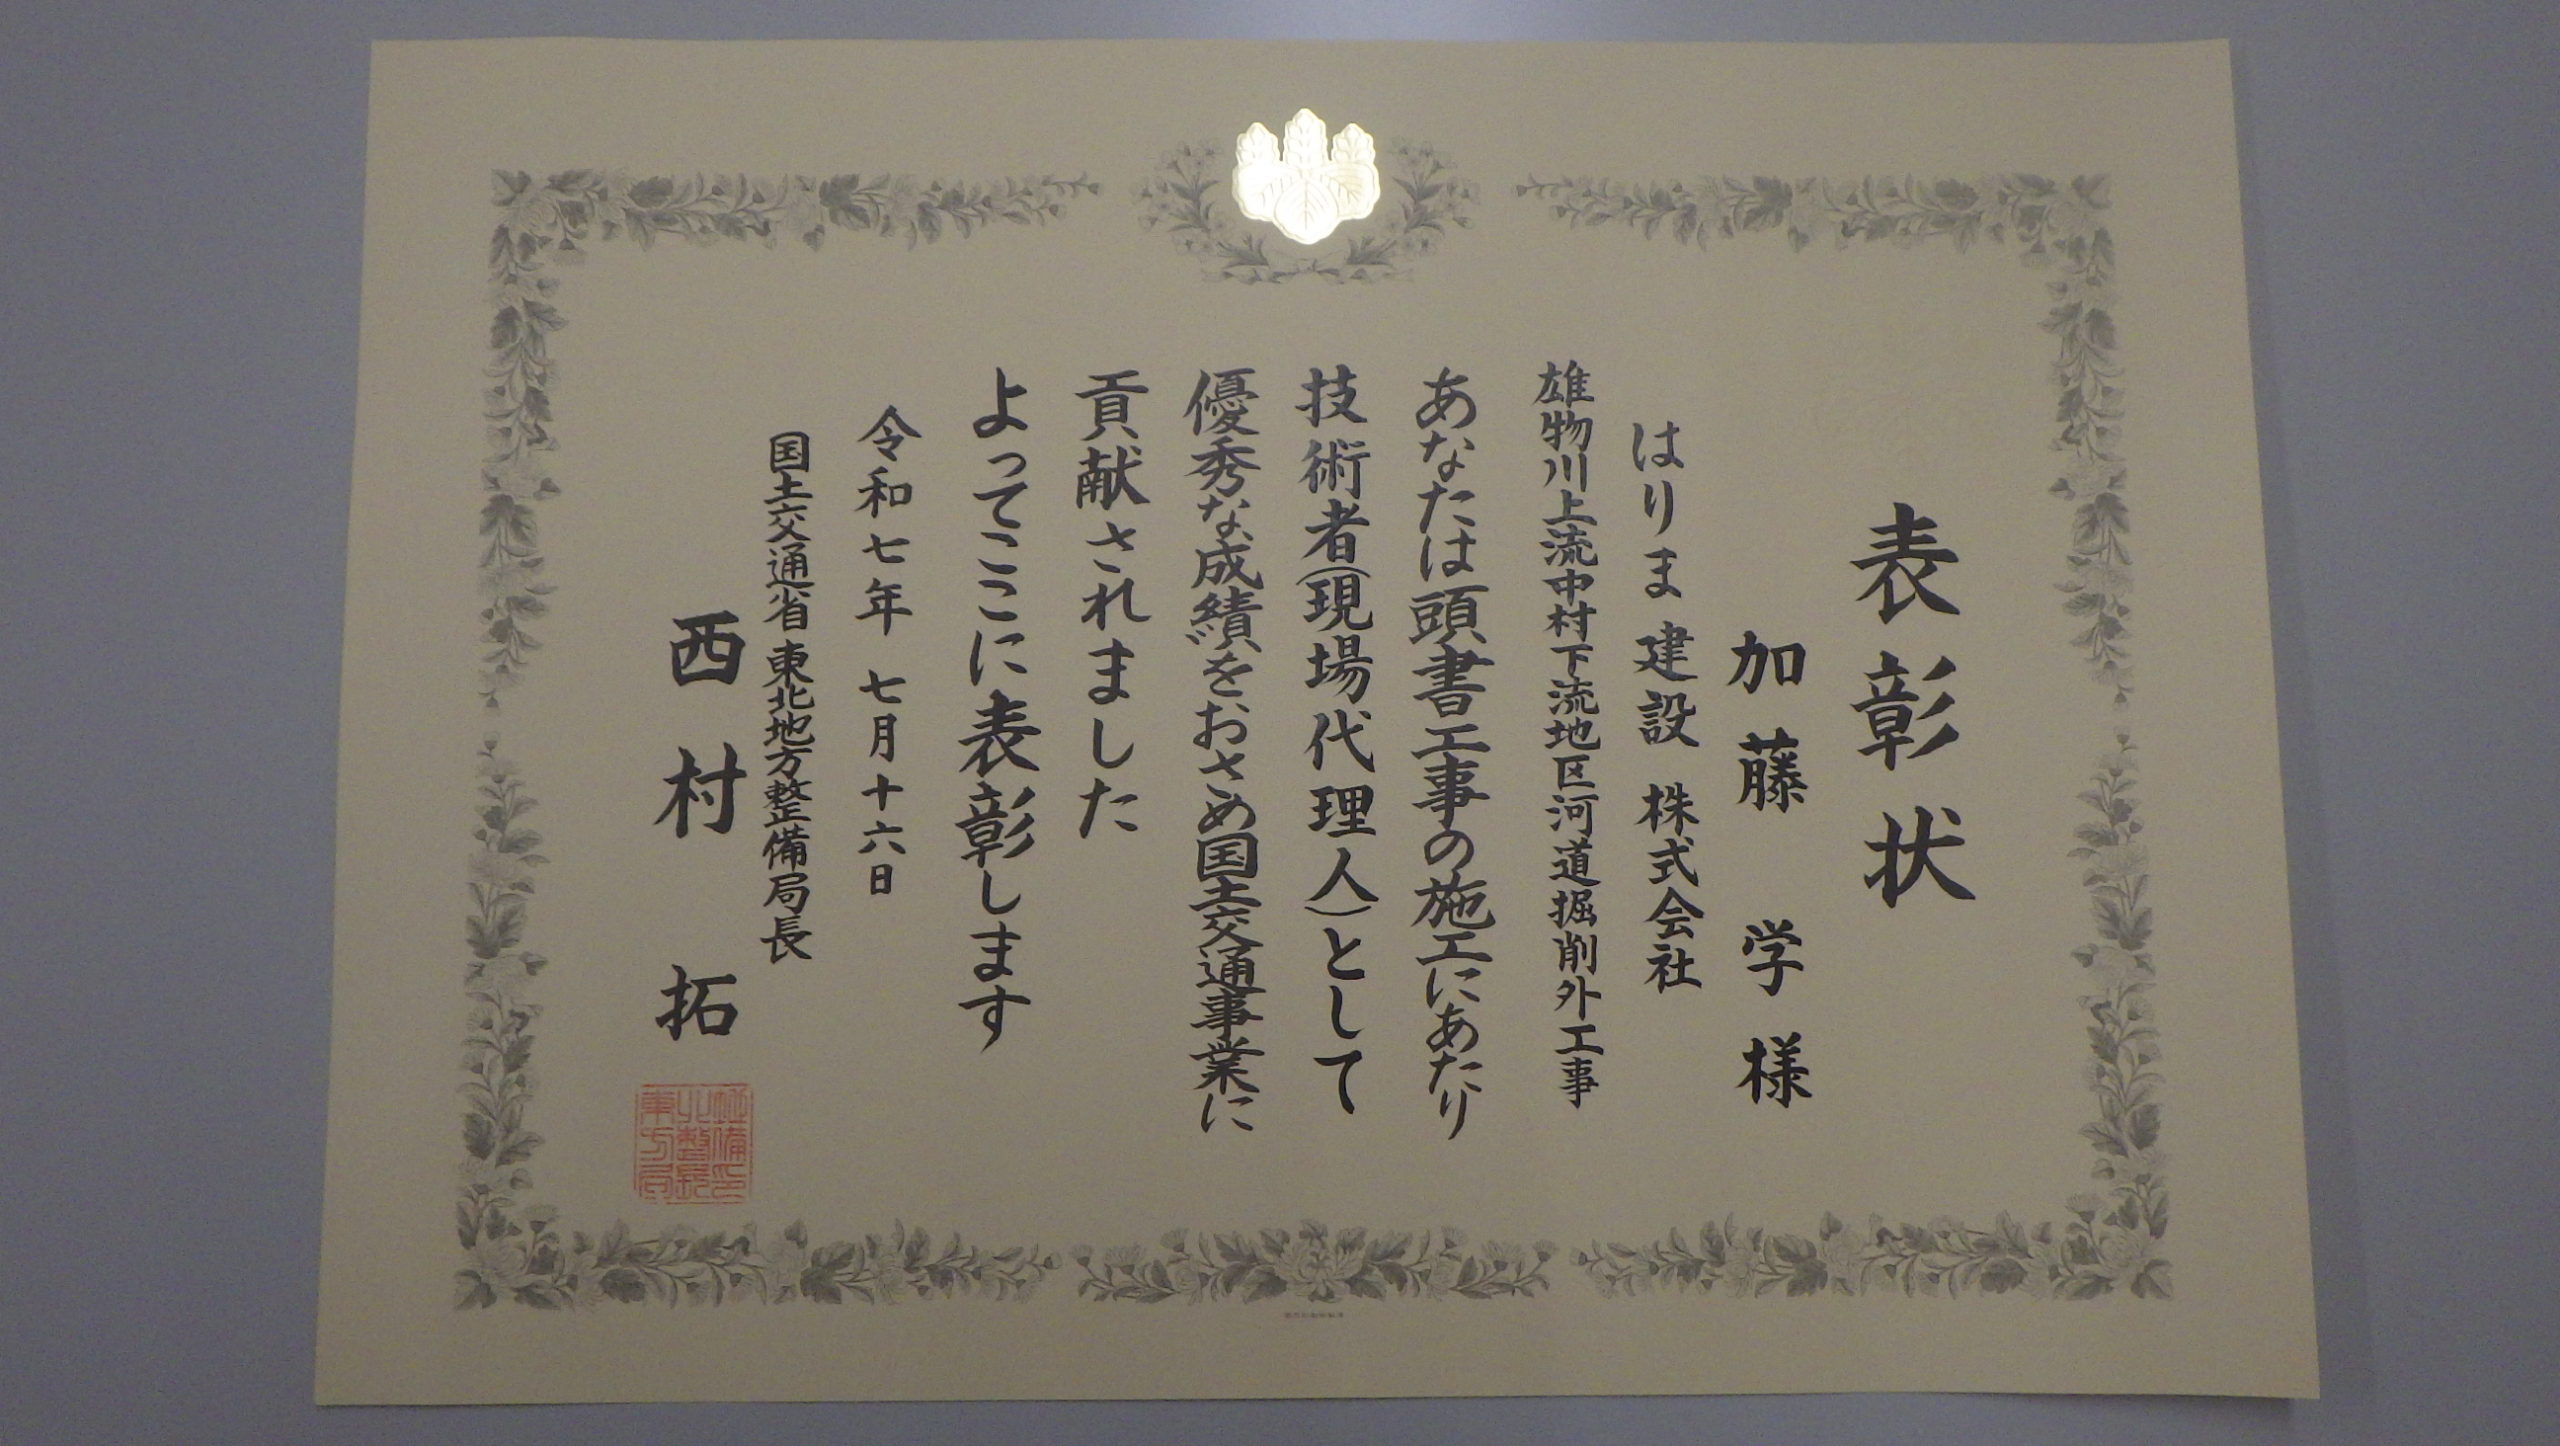 表彰状
加藤 学 様
はりま建設 株式会社
雄物川上流中村下流地区河道掘削外工事
あなたは頭書工事の施工にあたり
技術者(現場代理人)として
優秀な成績をおさめ国土交通事業に
貢献されました
よってここに表彰します
令和七年 七月十六日
国土交通省 東北地方整備局長
西村 拓